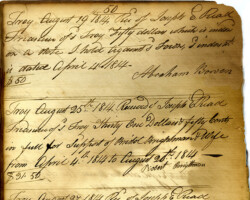 50
Troy August 19 1814 Rec of Joseph E Read
Treasurer of Troy Fifty dollars which is
on a note I hold against Town
is dated April 4 1814
Abraham Bowen
$ 50
Troy August 25th 1814 Received of Joseph E Read
Treasurer of Troy Thirty One Dollars & fifty Cents
in full for Support of & Wife
from April 4th 1814 to August 20th 1814
$ 31-50
Troy August 1814 of Joseph E Read